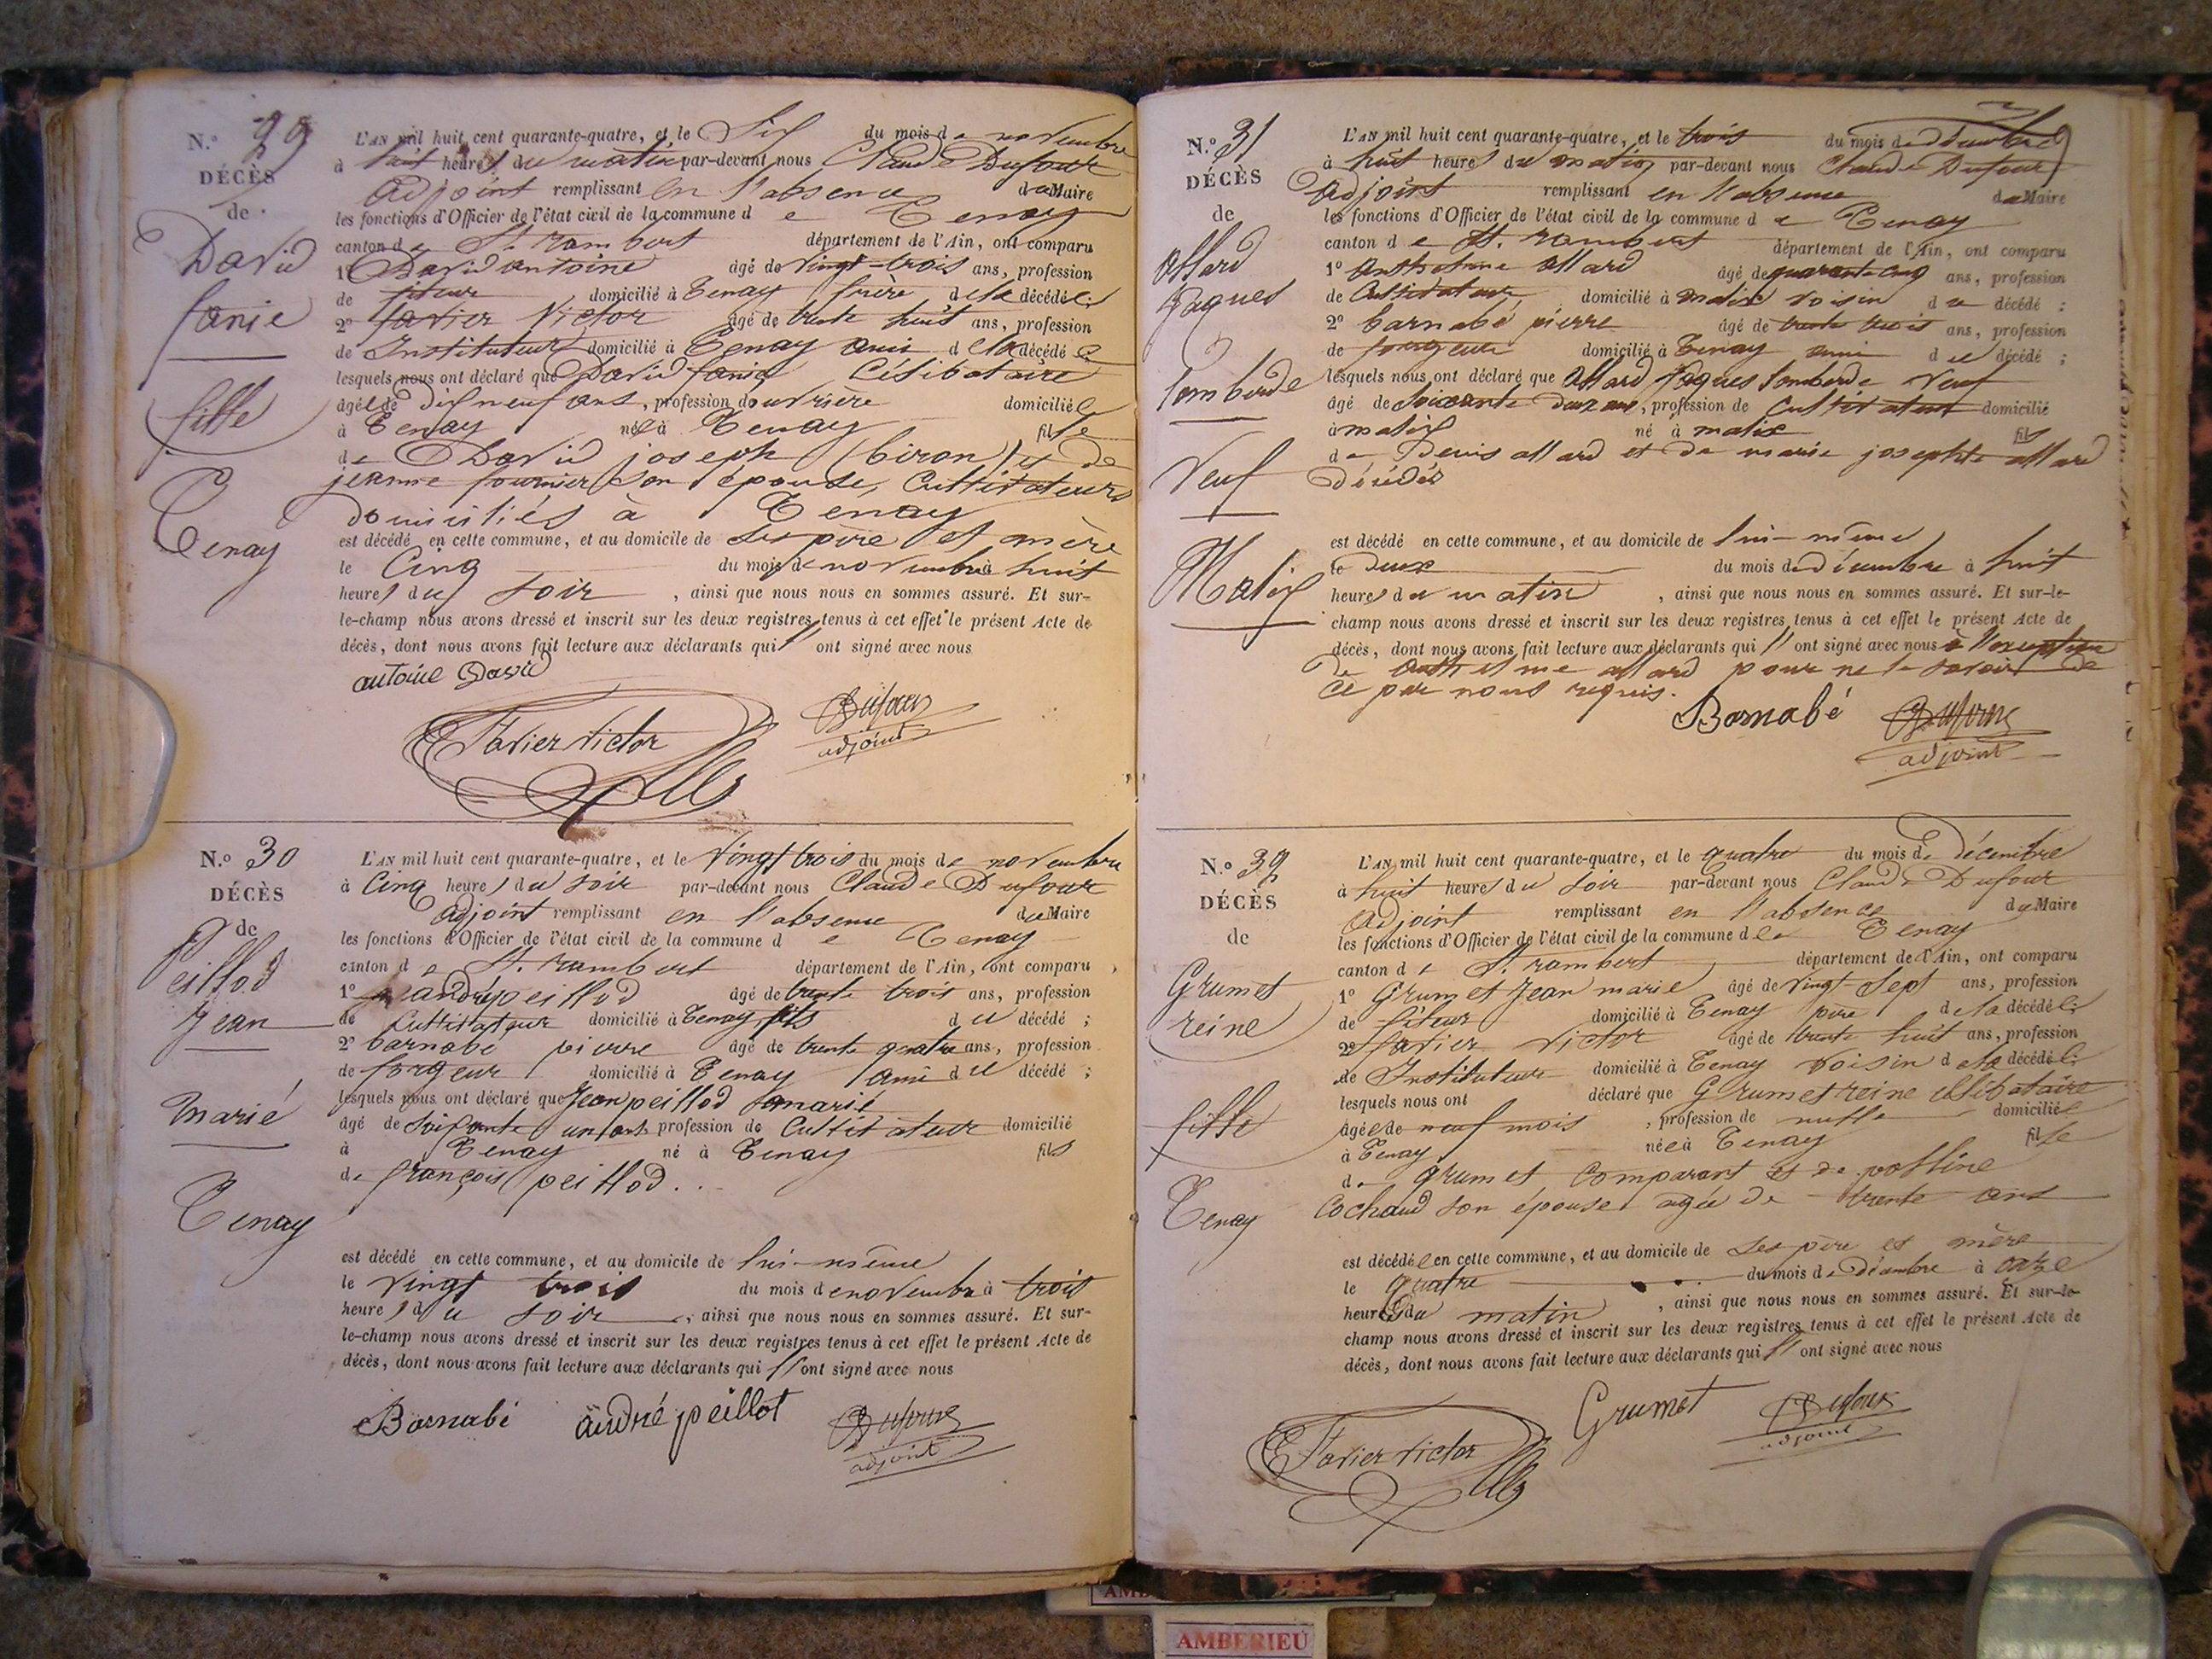 N.º 29
DÉCÈS
de
David
fanie
fille
Tenay
L'AN mil huit cent quarante-quatre, et le Six du mois de novembre
à huit heures du matin par-devant nous Claude Dufour
adjoint remplissant en l'absence du Maire
les fonctions d'Officier de l'état civil de la commune de Tenay
canton de St. rambert département de l'Ain, ont comparu
1º David antoine âgé de vingt-trois ans, profession
de fileur domicilié à Tenay frère de la décédée;
2º favier Victor âgé de trente huit ans, profession
de Instituteur domicilié à Tenay ami de la décédée
lesquels nous ont déclaré que David fanie Célibataire
âgée de dix neuf ans, profession d'ouvrière domiciliée
à Tenay née à Tenay fille
de David joseph (biron) et de
jeanne fournier son épouse, Cultivateurs
domiciliés à Tenay
est décédé en cette commune, et au domicile de ses père et mère
le Cinq du mois de novembre à huit
heures du soir, ainsi que nous nous en sommes assuré. Et sur-
le-champ nous avons dressé et inscrit sur les deux registres tenus à cet effet le présent Acte de
décès, dont nous avons fait lecture aux déclarants qui ont signé avec nous
antoine David
Favier victor
Dufour
adjoint
N.º 30
DÉCÈS
de
Peillod
Jean
marié
Tenay
L'AN mil huit cent quarante-quatre, et le Vingt trois du mois de novembre
à Cinq heures du soir par-devant nous Claude Dufour
adjoint remplissant en l'absence du Maire
les fonctions d'Officier de l'état civil de la commune de Tenay
canton de St. rambert département de l'Ain, ont comparu
1º andré peillod âgé de trente trois ans, profession
de Cultivateur domicilié à Tenay fils du décédé;
2º barnabé pierre âgé de trente quatre ans, profession
de forgeur domicilié à Tenay ami du décédé;
lesquels nous ont déclaré que Jean peillod marié
âgé de soixante un ans, profession de Cultivateur domicilié
à Tenay né à Tenay fils
de françois peillod.
est décédé en cette commune, et au domicile de lui-même
le vingt trois du mois de novembre à trois
heures du soir, ainsi que nous nous en sommes assuré. Et sur-
le-champ nous avons dressé et inscrit sur les deux registres tenus à cet effet le présent Acte de
décès, dont nous avons fait lecture aux déclarants qui ont signé avec nous
Barnabé andré peillot Dufour
adjoint
N.º 31
DÉCÈS
de
allard
Jaques
lomberde
Veuf
Malix
L'AN mil huit cent quarante-quatre, et le trois du mois de décembre
à huit heures du matin par-devant nous Claude Dufour
adjoint remplissant en l'absence du Maire
les fonctions d'Officier de l'état civil de la commune de Tenay
canton de St. rambert département de l'Ain, ont comparu
1º anthelme allard âgé de quarante cinq ans, profession
de Cultivateur domicilié à malix voisin du décédé;
2º barnabé pierre âgé de trente trois ans, profession
de forgeur domicilié à Tenay ami du décédé;
lesquels nous ont déclaré que allard Jaques lomberde veuf
âgé de soixante douze ans, profession de Cultivateur domicilié
à malix né à malix fils
de Denis allard et de marie josephte allard
décédés
est décédé en cette commune, et au domicile de lui-même
le deux du mois de décembre à huit
heures du matin, ainsi que nous nous en sommes assuré. Et sur-le-
champ nous avons dressé et inscrit sur les deux registres tenus à cet effet le présent Acte de
décès, dont nous avons fait lecture aux déclarants qui ont signé avec nous à l'exception
de anthelme allard pour ne le savoir de
ce par nous requis.
Barnabé Dufour
adjoint
N.º 32
DÉCÈS
de
Grumet
reine
fille
Tenay
L'AN mil huit cent quarante-quatre, et le quatre du mois de décembre
à huit heures du soir par-devant nous Claude Dufour
adjoint remplissant en l'absence du Maire
les fonctions d'Officier de l'état civil de la commune de Tenay
canton de St. rambert département de l'Ain, ont comparu
1º Grumet Jean marie âgé de vingt-sept ans, profession
de fileur domicilié à Tenay père de la décédée;
2º favier victor âgé de trente huit ans, profession
de Instituteur domicilié à Tenay voisin de la décédée;
lesquels nous ont déclaré que Grumet reine célibataire
âgée de neuf mois, profession de nulle domiciliée
à Tenay née à Tenay fille
de grumet comparant et de polline
Cochaud son épouse agée de trente ans
est décédée en cette commune, et au domicile de ses père et mère
le quatre du mois de décembre à onze
heures du matin, ainsi que nous nous en sommes assuré. Et sur-le-
champ nous avons dressé et inscrit sur les deux registres tenus à cet effet le présent Acte de
décès, dont nous avons fait lecture aux déclarants qui ont signé avec nous
Favier victor Grumet Dufour
adjoint
AMBERIEU